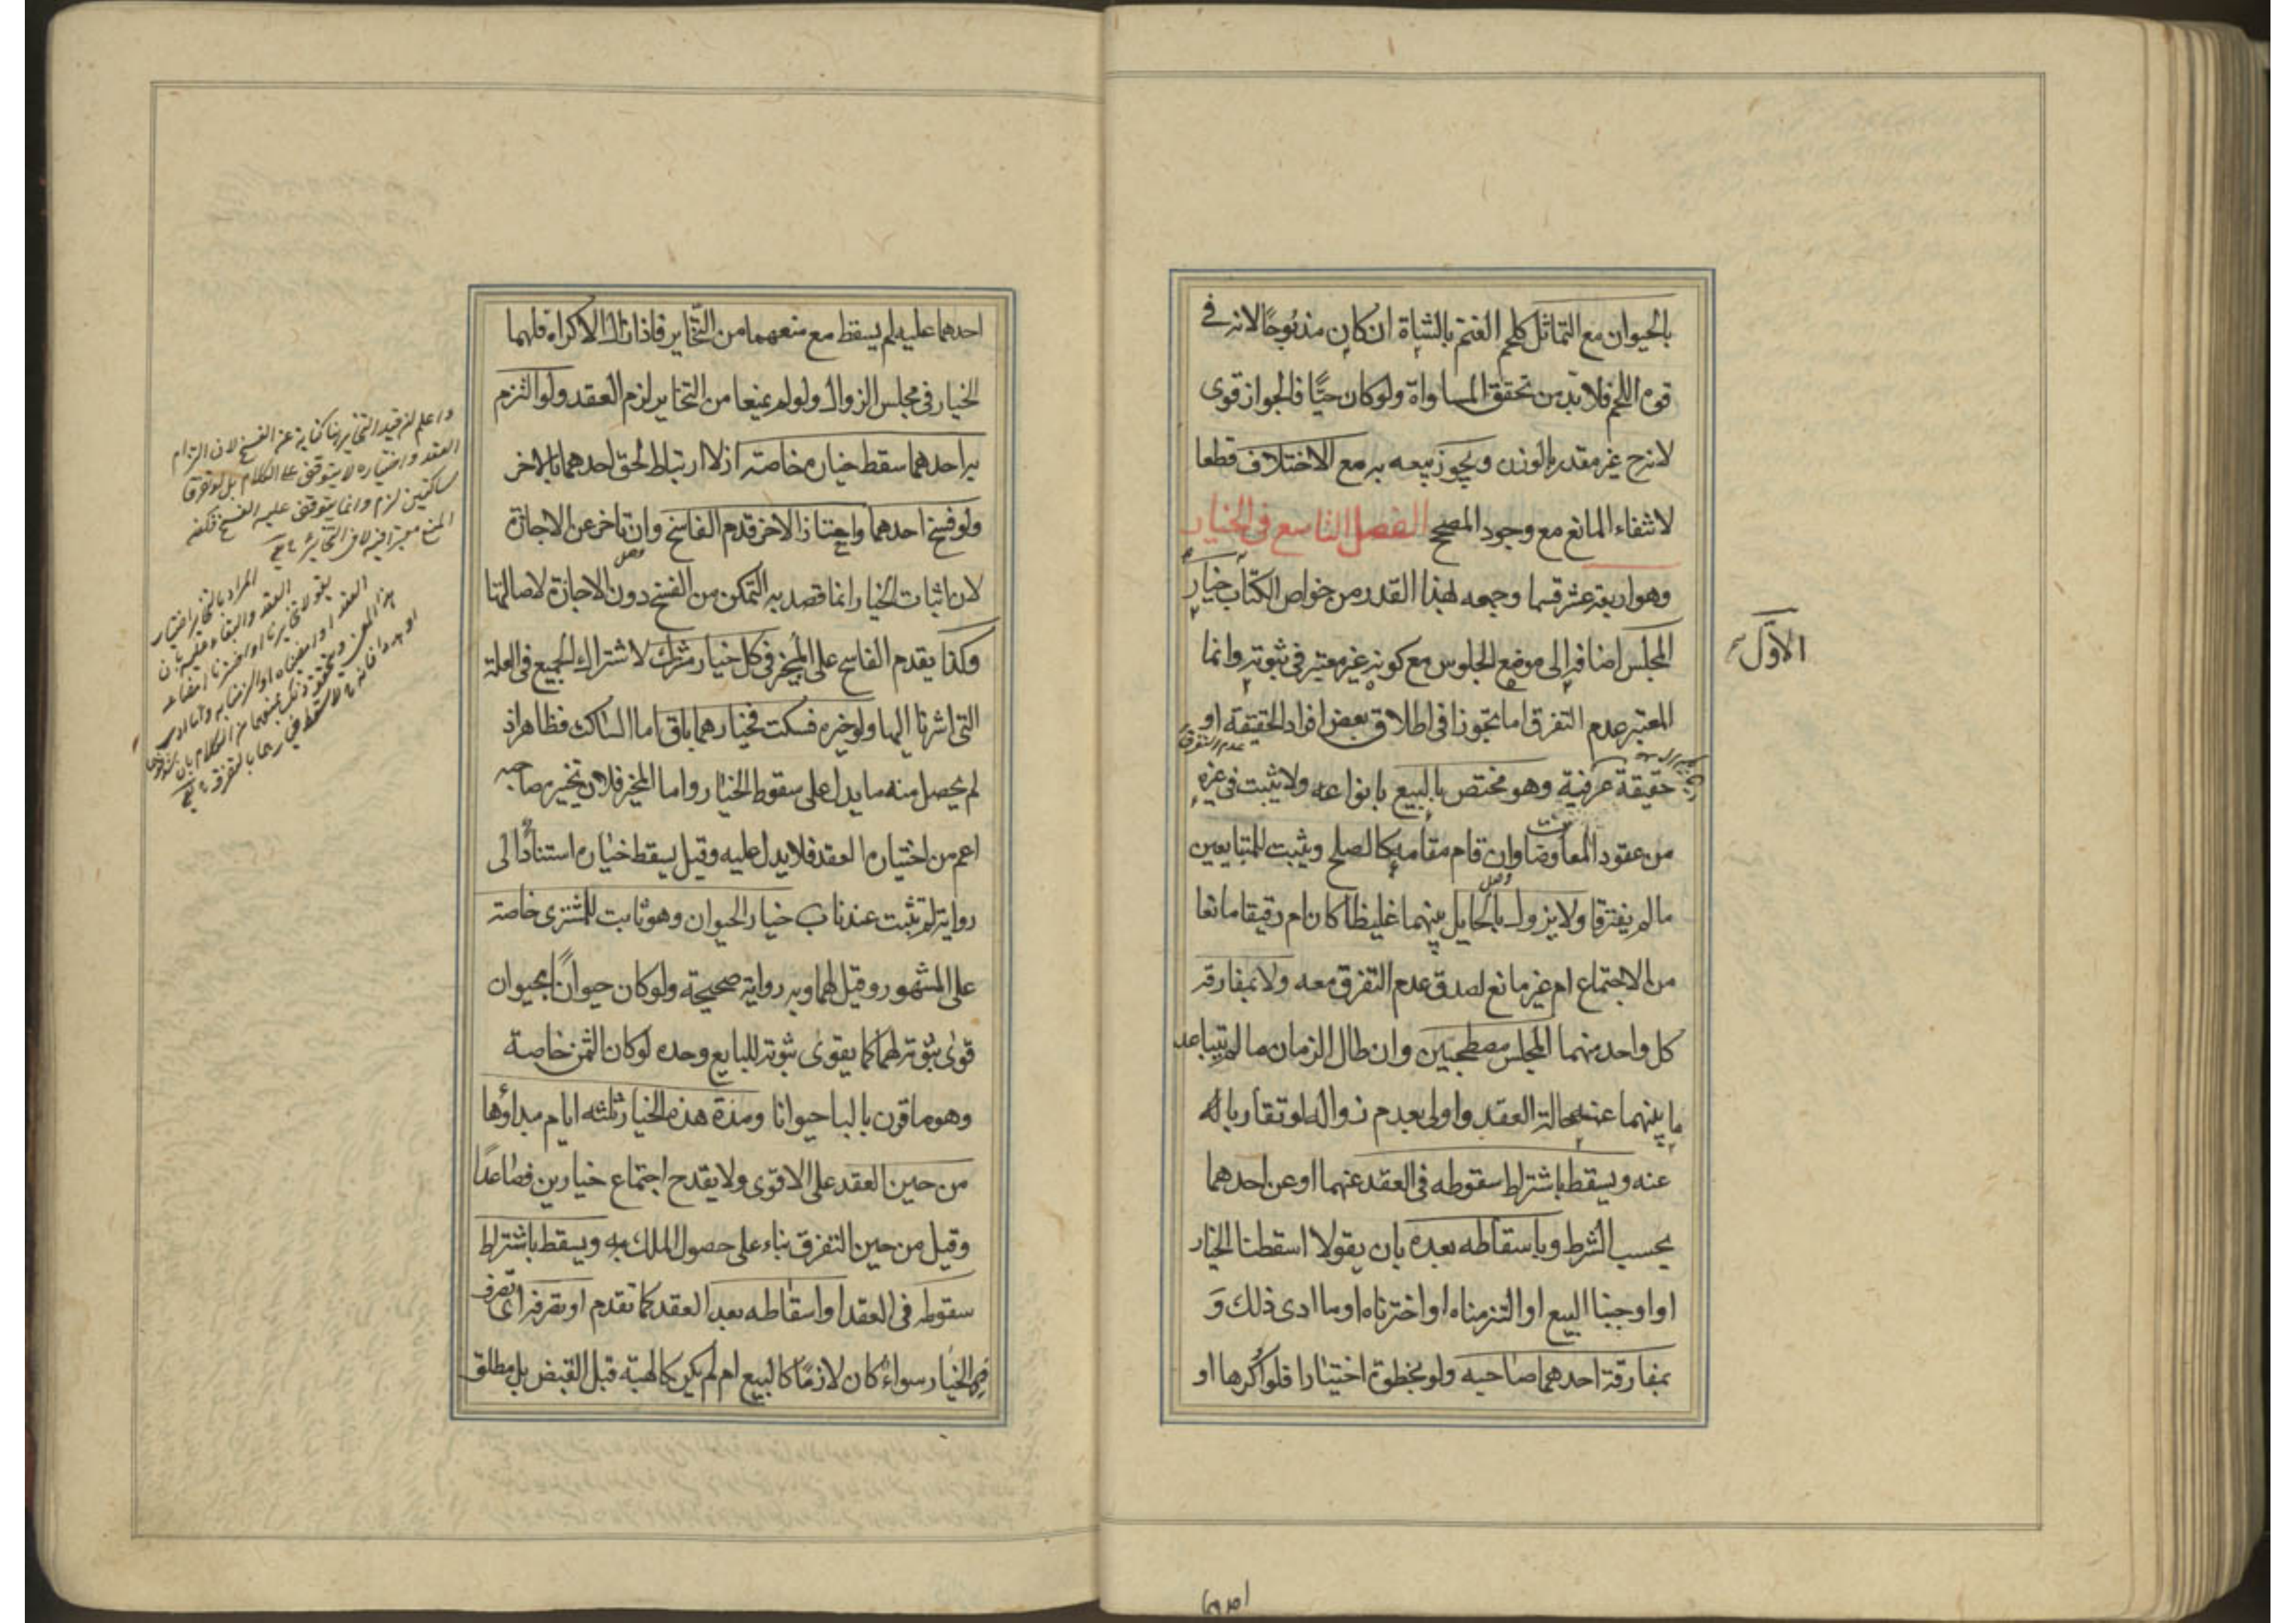 بالحيوان مع التماثل كلحم الغنم بالشاة ان كان مذبوحًا لانه في
قوة اللحم فلا بد من تحقق المساواة ولو كان حيًّا فالجواز قوى
لانه ح غير مقدر بالوزن ويجوز بيعه به مع الاختلاف قطعا
لانتفاء المانع مع وجود المصحح الفصل التاسع في الخيار
وهو اربعة عشر قسما وجمعه لهذا القدر من خواص الكتاب خيار
الاوّل
المجلس اضافه الى موضع الجلوس مع كونه غير معتبر في ثبوته وانما
المعتبر عدم التفرق اما تجوزا في اطلاق بعض افراد الحقيقة او
عدم التفرق
حقيقة عرفية وهو مختص بالبيع بانواعه ولا يثبت في غيره
من عقود المعاوضات وان قام مقامه كالصلح ويثبت للمتبايعين
ما لم يفترقا ولا يزول بالحايل بينهما غليظا كان ام رقيقا مانعا
من الاجتماع ام غير مانع لصدق عدم التفرق معه ولا بمفارقة
كل واحد منهما المجلس مصطحبين وان طال الزمان ما لم يتباعد
ما بينهما عنه حالة العقد واولى بعدم زواله لو تقاربا
عنه ويسقط باشتراط سقوطه في العقد عنهما او عن احدهما
بحسب الشرط وباسقاطه بعده بان يقولا اسقطنا الخيار
او اوجبنا البيع او التزمناه او اخترناه او ما ادى ذلك وَ
بمفارقة احدهما صاحبه ولو بخطوة اختيارا فلو اُكرها او
احدهما
احدهما عليه لم يسقط مع منعهما من التخاير فاذا زال الاكراه فلهما
الخيار في مجلس الزوال ولو لم يمنعا من التخاير لزم العقد ولو التزم
به احدهما سقط خياره خاصة اذ لا ارتباط لحق احدهما بالاخر
ولو فسخ احدهما واجاز الاخر قدم الفاسخ وان تاخر عن الاجازة
لان اثبات الخيار انما قصد به التمكن من الفسخ دون الاجازة لاصالتها
وكذا يقدم الفاسخ على المجيز في كل خيار مشترك لاشتراك الجميع في العلة
التي اشرنا اليها ولو خيره فسكت فخيارهما باق اما الساكت فظاهر اذ
لم يحصل منه ما يدل على سقوط الخيار واما المخير فلان تخييره صاحبه
اعم من اختياره العقد فلا يدل عليه وقيل يسقط خياره استنادًا الى
رواية لم تثبت عندنا ب خيار الحيوان وهو ثابت للمشترى خاصة
على المشهور وقيل لهما وبه رواية صحيحة ولو كان حيوانًا بحيوان
قوى ثبوته لهما كما يقوى ثبوته للبايع وحده لو كان الثمن خاصة
وهو ما قرن بالبا حيوانا ومدة هذه الخيار ثلثه ايام مبداؤها
من حين العقد على الاقوى ولا يقدح اجتماع خيارين فصاعدًا
وقيل من حين التفرق بناء على حصول الملك به ويسقط باشتراط
سقوطه في العقد او اسقاطه بعد العقد كما تقدم او تصرفه اى تصرف
ذى الخيار سواء كان لازمًا كالبيع ام لم يكن كالهبة قبل القبض بل مطلق
واعلم ان قيد التخاير هنا كناية عن الفسخ لان التزام
العقد واختياره لا يتوقف على الكلام بل لو تفرقا
ساكتين لزم وانما يتوقف عليه الفسخ
المراد بالتخاير اختيار
العقد والبقاء عليه بان
يقولا تخايرنا او اخترنا امضاء
العقد او امضيناه او التزمنا به وما ادى
هذا المعنى ويتحقق ذلك بمنعهما من الكلام بان